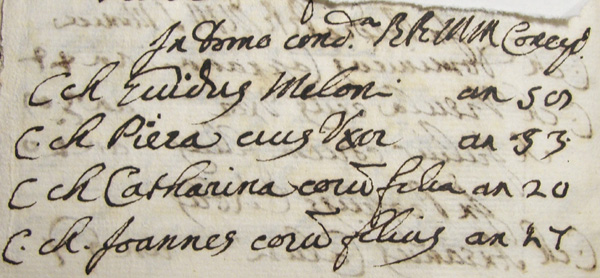 In Domo cond.a RR MM Concep.
C ch Euidius Meloni an 50
C. ch Piera eius Vxor an 53.
C ch Catharina corū filia an 20
C. ch. Joannes corū filius an 27